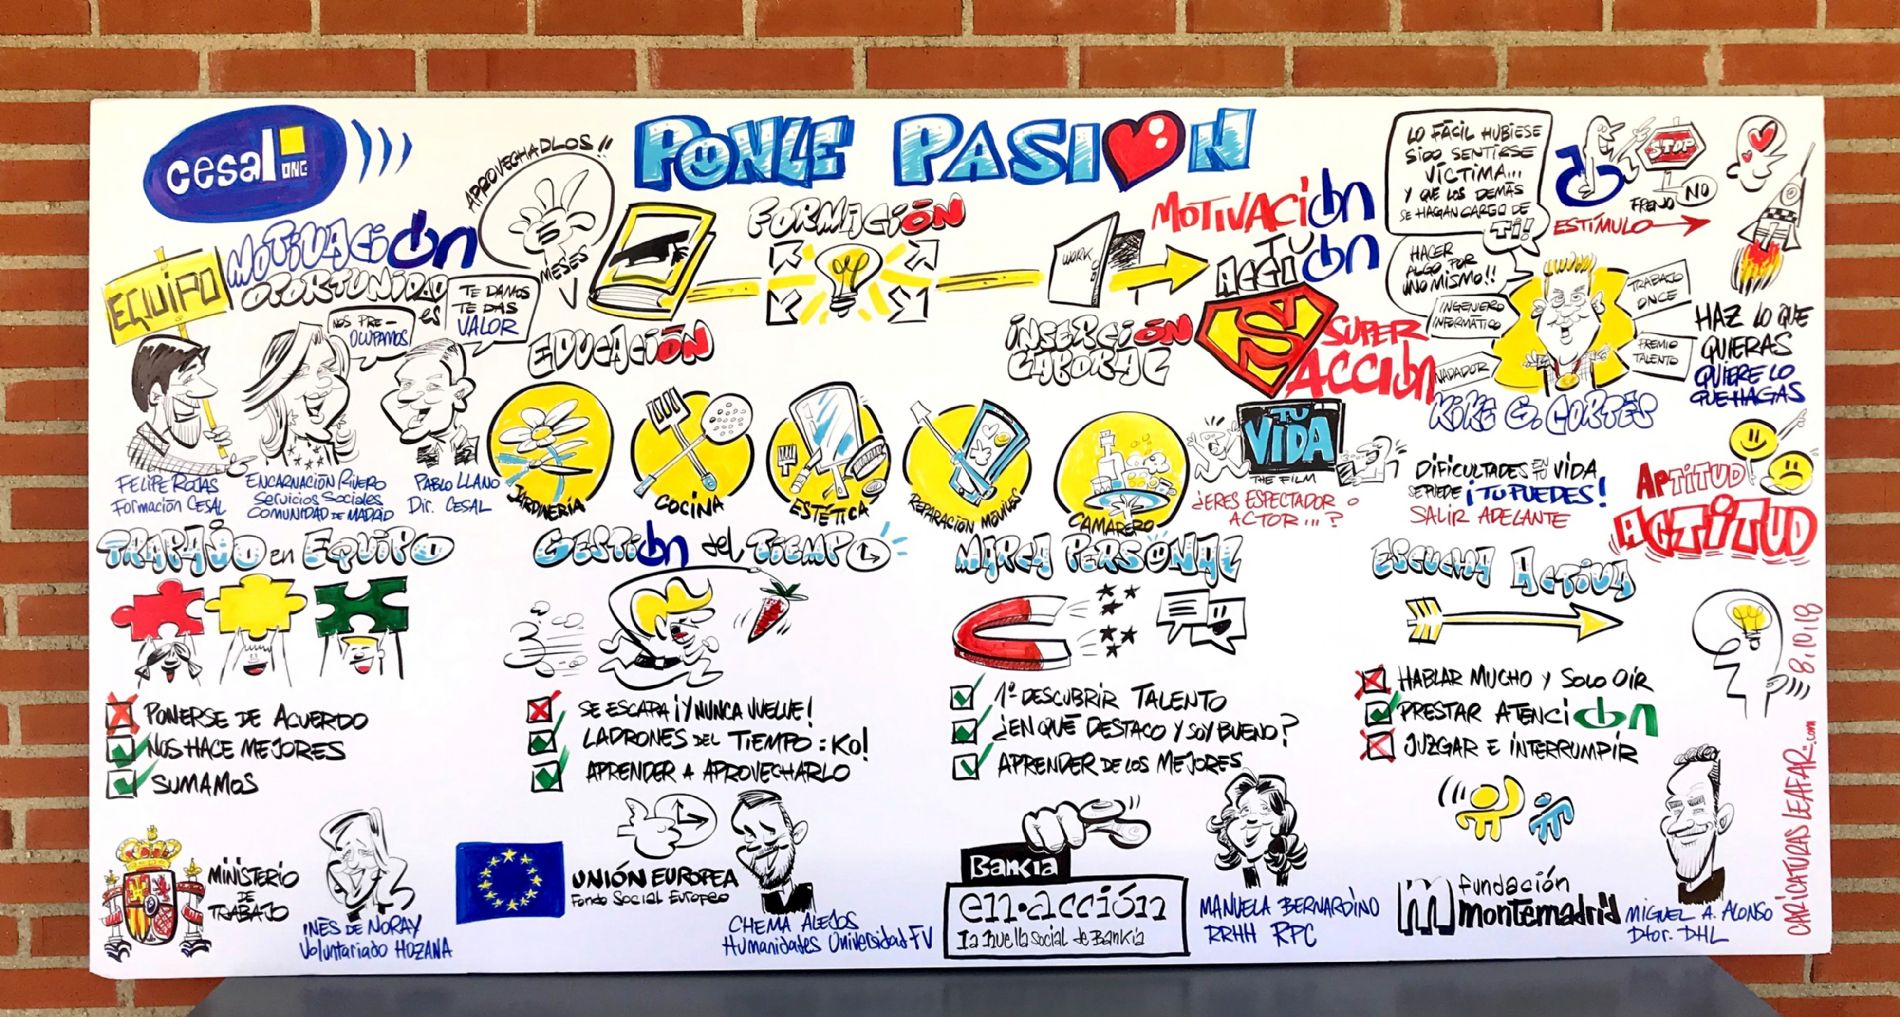 cesal
ONG
PONLE PASIÓN
APROVECHADLOS!!
MESES
EQUIPO
MOTIVACIÓN
OPORTUNIDAD
es
NOS PRE-
OCUPAMOS
TE DAMOS
TE DAS
VALOR
FELIPE ROJAS
Formación CESAL
ENCARNACIÓN RIVERO
Servicios Sociales
COMUNIDAD DE MADRID
PABLO LLANO
Dir. CESAL
EDUCACIÓN
FORMACIÓN
WORK
INSERCIÓN
LABORAL
MOTIVACIÓN
ACTITUD
ON
S
SUPER
ACCIÓN
JARDINERÍA
COCINA
ESTÉTICA
REPARACIÓN MÓVILES
CAMARERO
TU
VIDA
THE FILM
¿ERES ESPECTADOR o
ACTOR...?
LO FÁCIL HUBIESE
SIDO SENTIRSE
VÍCTIMA...
Y QUE LOS DEMÁS
SE HAGAN CARGO DE
TI!
HACER
ALGO POR
UNO MISMO!!
INGENIERO
INFORMÁTICO
NADADOR
TRABAJO
ONCE
PREMIO
TALENTO
KIKE G. CORTÉS
STOP
FRENO NO
ESTÍMULO
HAZ LO QUE
QUIERAS
QUIERE LO
QUE HAGAS
DIFICULTADES EN TU VIDA
SE PUEDE ¡TU PUEDES!
SALIR ADELANTE
APTITUD
ACTITUD
TRABAJO en EQUIPO
PONERSE DE ACUERDO
NOS HACE MEJORES
SUMAMOS
GESTIÓN del TIEMPO
SE ESCAPA ¡Y NUNCA VUELVE!
LADRONES DEL TIEMPO: KO!
APRENDER A APROVECHARLO
MARCA PERSONAL
1º DESCUBRIR TALENTO
¿EN QUÉ DESTACO Y SOY BUENO?
APRENDER DE LOS MEJORES
ESCUCHA ACTIVA
HABLAR MUCHO Y SOLO OÍR
PRESTAR ATENCIÓN
JUZGAR E INTERRUMPIR
MINISTERIO
DE
TRABAJO
INÉS DE NORAY
Voluntariado HOZANA
UNIÓN EUROPEA
Fondo Social Europeo
CHEMA ALEJOS
Humanidades Universidad FV
Bankia
en·acción
la huella social de Bankia
MANUELA BERNARDINO
RRHH RPC
fundación
montemadrid
MIGUEL A. ALONSO
Dtor. DHL
CARICATURAS LEAFAR.com
8.10.18